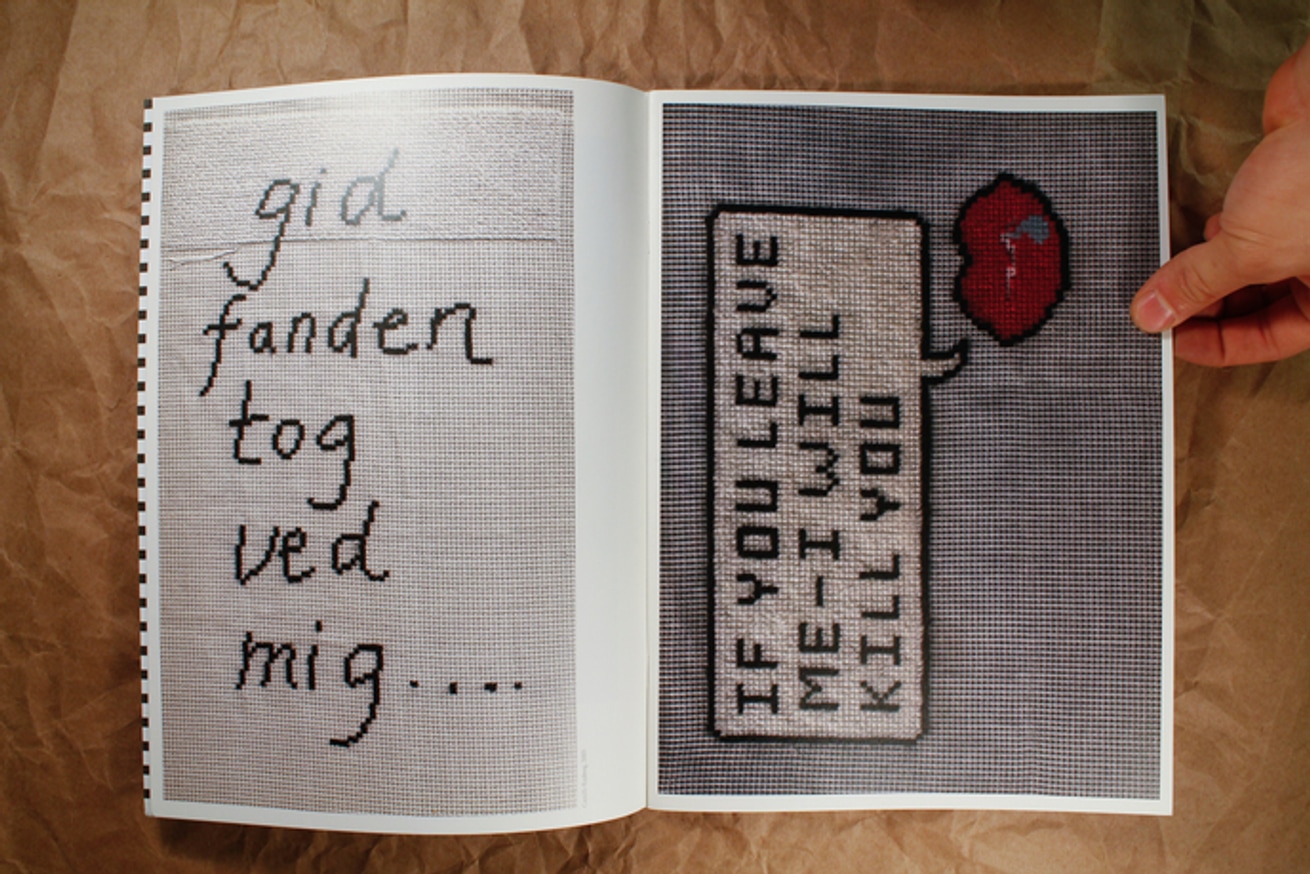 gid
fanden
tog
ved
mig....
IF YOU LEAVE
ME-I WILL
KILL YOU